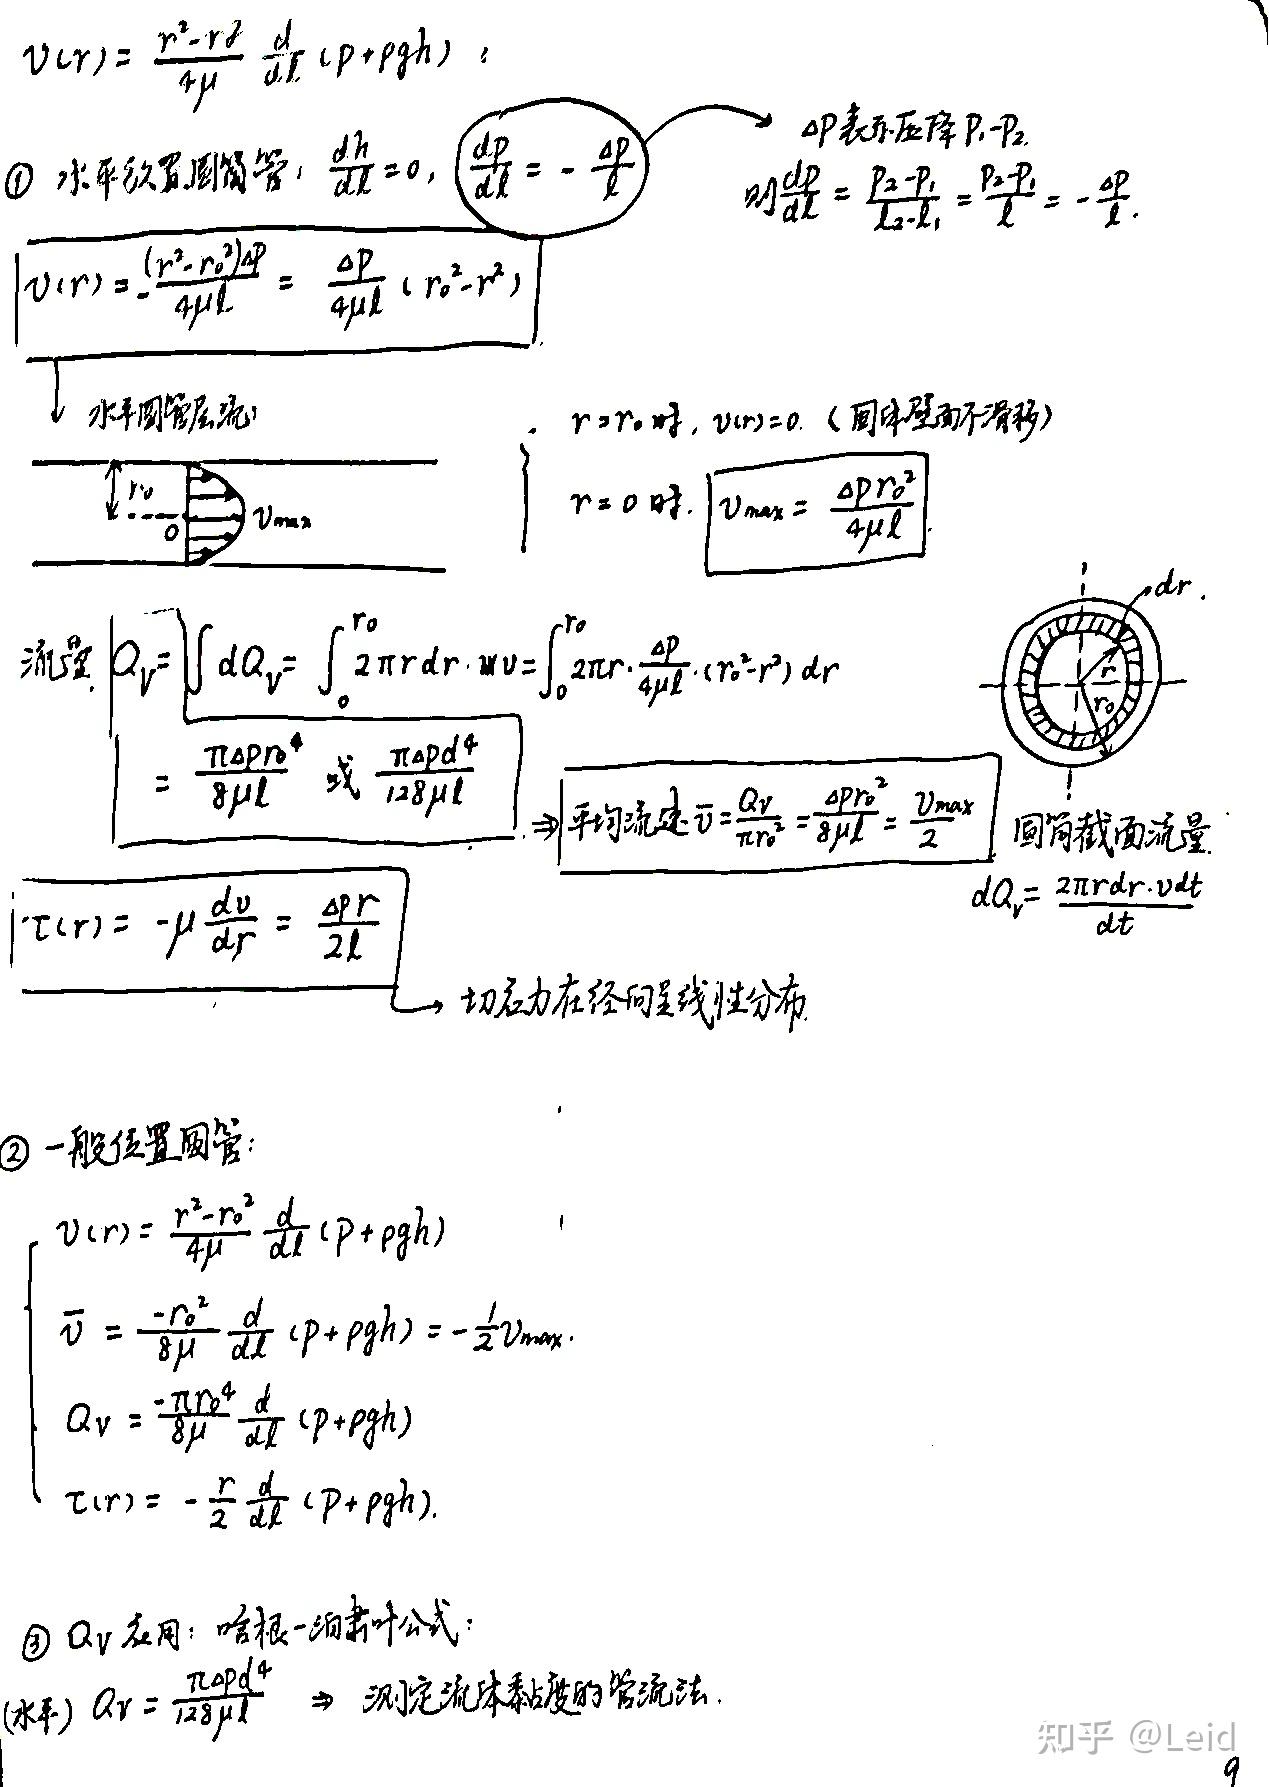 v(r) = \frac{r²-r₀²}{4μ} \frac{d}{dl} (p+ρgh) :
① 水平放置圆筒管: \frac{dh}{dl}=0, \frac{dp}{dl} = -\frac{Δp}{l}
Δp表示压降p₁-p₂.
则\frac{dp}{dl} = \frac{p₂-p₁}{l₂-l₁} = \frac{p₂-p₁}{l} = -\frac{Δp}{l}.
v(r) = -\frac{(r²-r₀²)Δp}{4μl} = \frac{Δp}{4μl} (r₀²-r²)
水平圆管层流:
r₀
0
vmax
r=r₀时, v(r)=0. (固体壁面不滑移)
r=0时. vmax = \frac{Δpr₀²}{4μl}
流量. Qv = ∫dQv = ∫₀^{r₀} 2πrdr·v = ∫₀^{r₀} 2πr·\frac{Δp}{4μl}·(r₀²-r²)dr
= \frac{πΔpr₀⁴}{8μl} 或 \frac{πΔpd⁴}{128μl}
⇒ 平均流速 \bar{v} = \frac{Qv}{πr₀²} = \frac{Δpr₀²}{8μl} = \frac{vmax}{2}
dr.
r
r₀
圆筒截面流量.
dQv = \frac{2πrdr·vdt}{dt}
τ(r) = -μ\frac{dv}{dr} = \frac{Δpr}{2l}
→ 切应力在径向呈线性分布.
② 一般位置圆管:
v(r) = \frac{r²-r₀²}{4μ} \frac{d}{dl} (p+ρgh)
\bar{v} = \frac{-r₀²}{8μ} \frac{d}{dl} (p+ρgh) = -\frac{1}{2}vmax.
Qv = \frac{-πr₀⁴}{8μ} \frac{d}{dl} (p+ρgh)
τ(r) = -\frac{r}{2} \frac{d}{dl} (p+ρgh).
③ Qv应用: 哈根-泊肃叶公式:
(水平) Qv = \frac{πΔpd⁴}{128μl} ⇒ 测定流体黏度的管流法.
知乎 @Leid
9